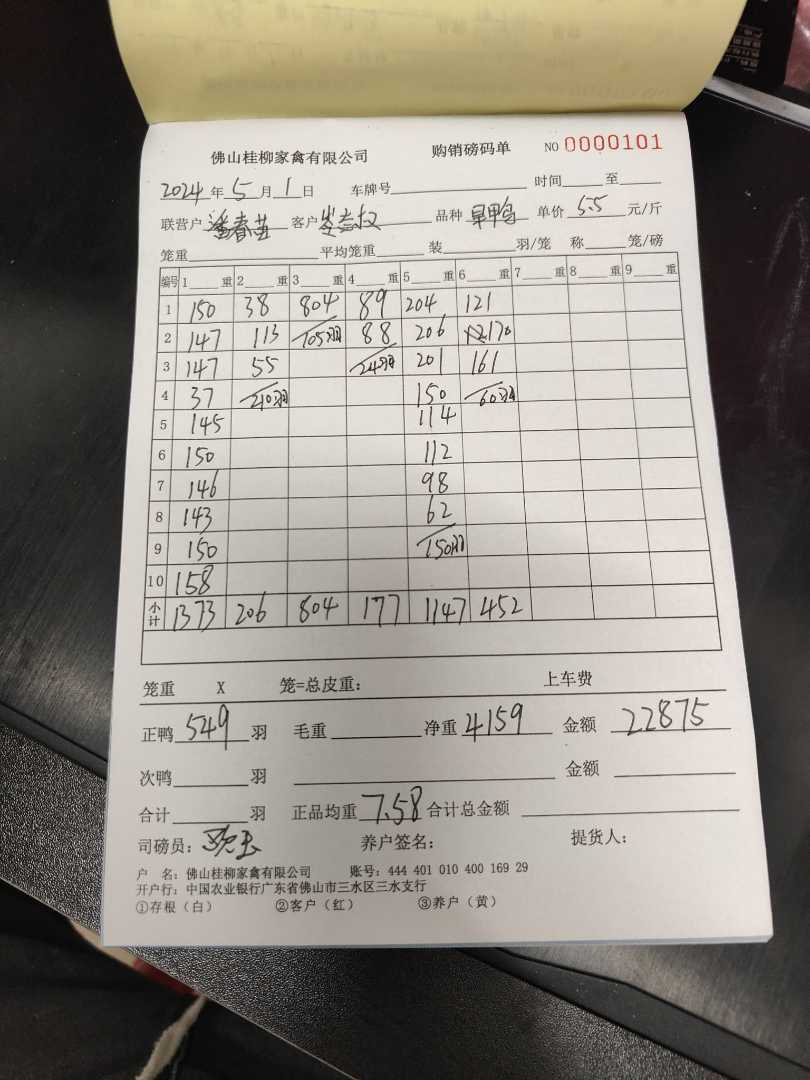 佛山桂柳家禽有限公司 购销磅码单 NO 0000101
2024 年 5 月 1 日 车牌号 时间 至
联营户 潘春苗 客户 品种 旱鸭 单价 5.5 元/斤
笼重 平均笼重 装 羽/笼 称 笼/磅
编号 1 重 2 重 3 重 4 重 5 重 6 重 7 重 8 重 9 重
1 150 38 804 89 204 121
2 147 113 105羽 88 206 170
3 147 55 24羽 201 161
4 37 210羽 150 60羽
5 145 114
6 150 112
7 146 98
8 143 62
9 150 150羽
10 158
小计 1373 206 804 177 1147 452
笼重 X 笼=总皮重: 上车费
正鸭 549 羽 毛重 净重 4159 金额 22875
次鸭 羽 金额
合计 羽 正品均重 7.58 合计总金额
司磅员: 养户签名: 提货人:
户 名: 佛山桂柳家禽有限公司 账号: 444 401 010 400 169 29
开户行: 中国农业银行广东省佛山市三水区三水支行
①存根（白） ②客户（红） ③养户（黄）